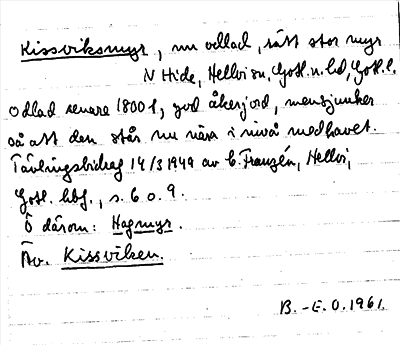 Kissviksmyr, nu odlad, rätt stor myr
N Hide, Hellvi sn, Gotl. n. hd, Gotl. l.
Odlad senare 1800 t, god åkerjord, men sjunker
så att den står nu nära i nivå med havet.
Tävlingsbidrag 14/3 1949 av C. Franzén, Hellvi,
Gotl. hbf., s. 6 o. 9.
Ö därom: Hagmyr.
Äv. Kissviken.
B.-E. O. 1961.